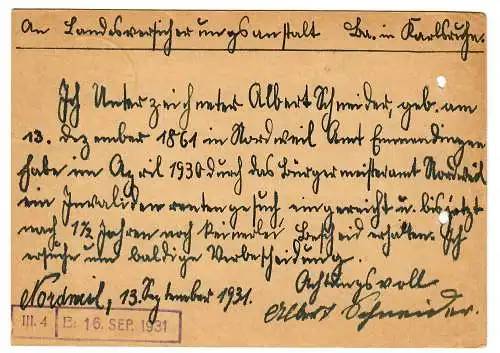 An Landesversicherungsanstalt Ba. in Karlsruhe.
Ich Unterzeichneter Albert Schneider, geb. am
13. Dezember 1861 in Nordweil Amt Emmendingen
habe im April 1930 durch das Bürgermeisteramt Nordweil
ein Invalidenrentengesuch eingereicht u. bis jetzt
nach 1½ Jahren noch keinerlei Bescheid erhalten. Ich
ersuche um baldige Verbescheidung.
Achtungsvoll
Nordweil, 13. September 1931.
Albert Schneider.
III. 4 E: 16. SEP. 1931